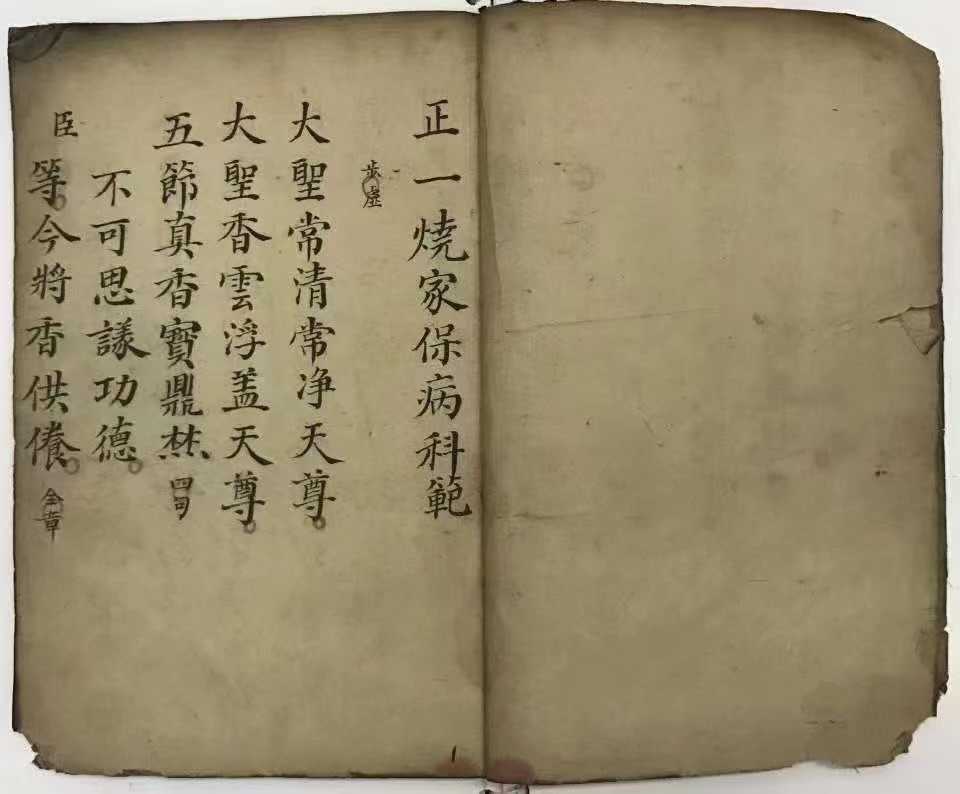 正一燒家保病科範
步虛
大聖常清常净天尊
大聖香雲浮盖天尊
五節真香寶鼎焚四句
不可思議功德
臣等今將香供養全章
1